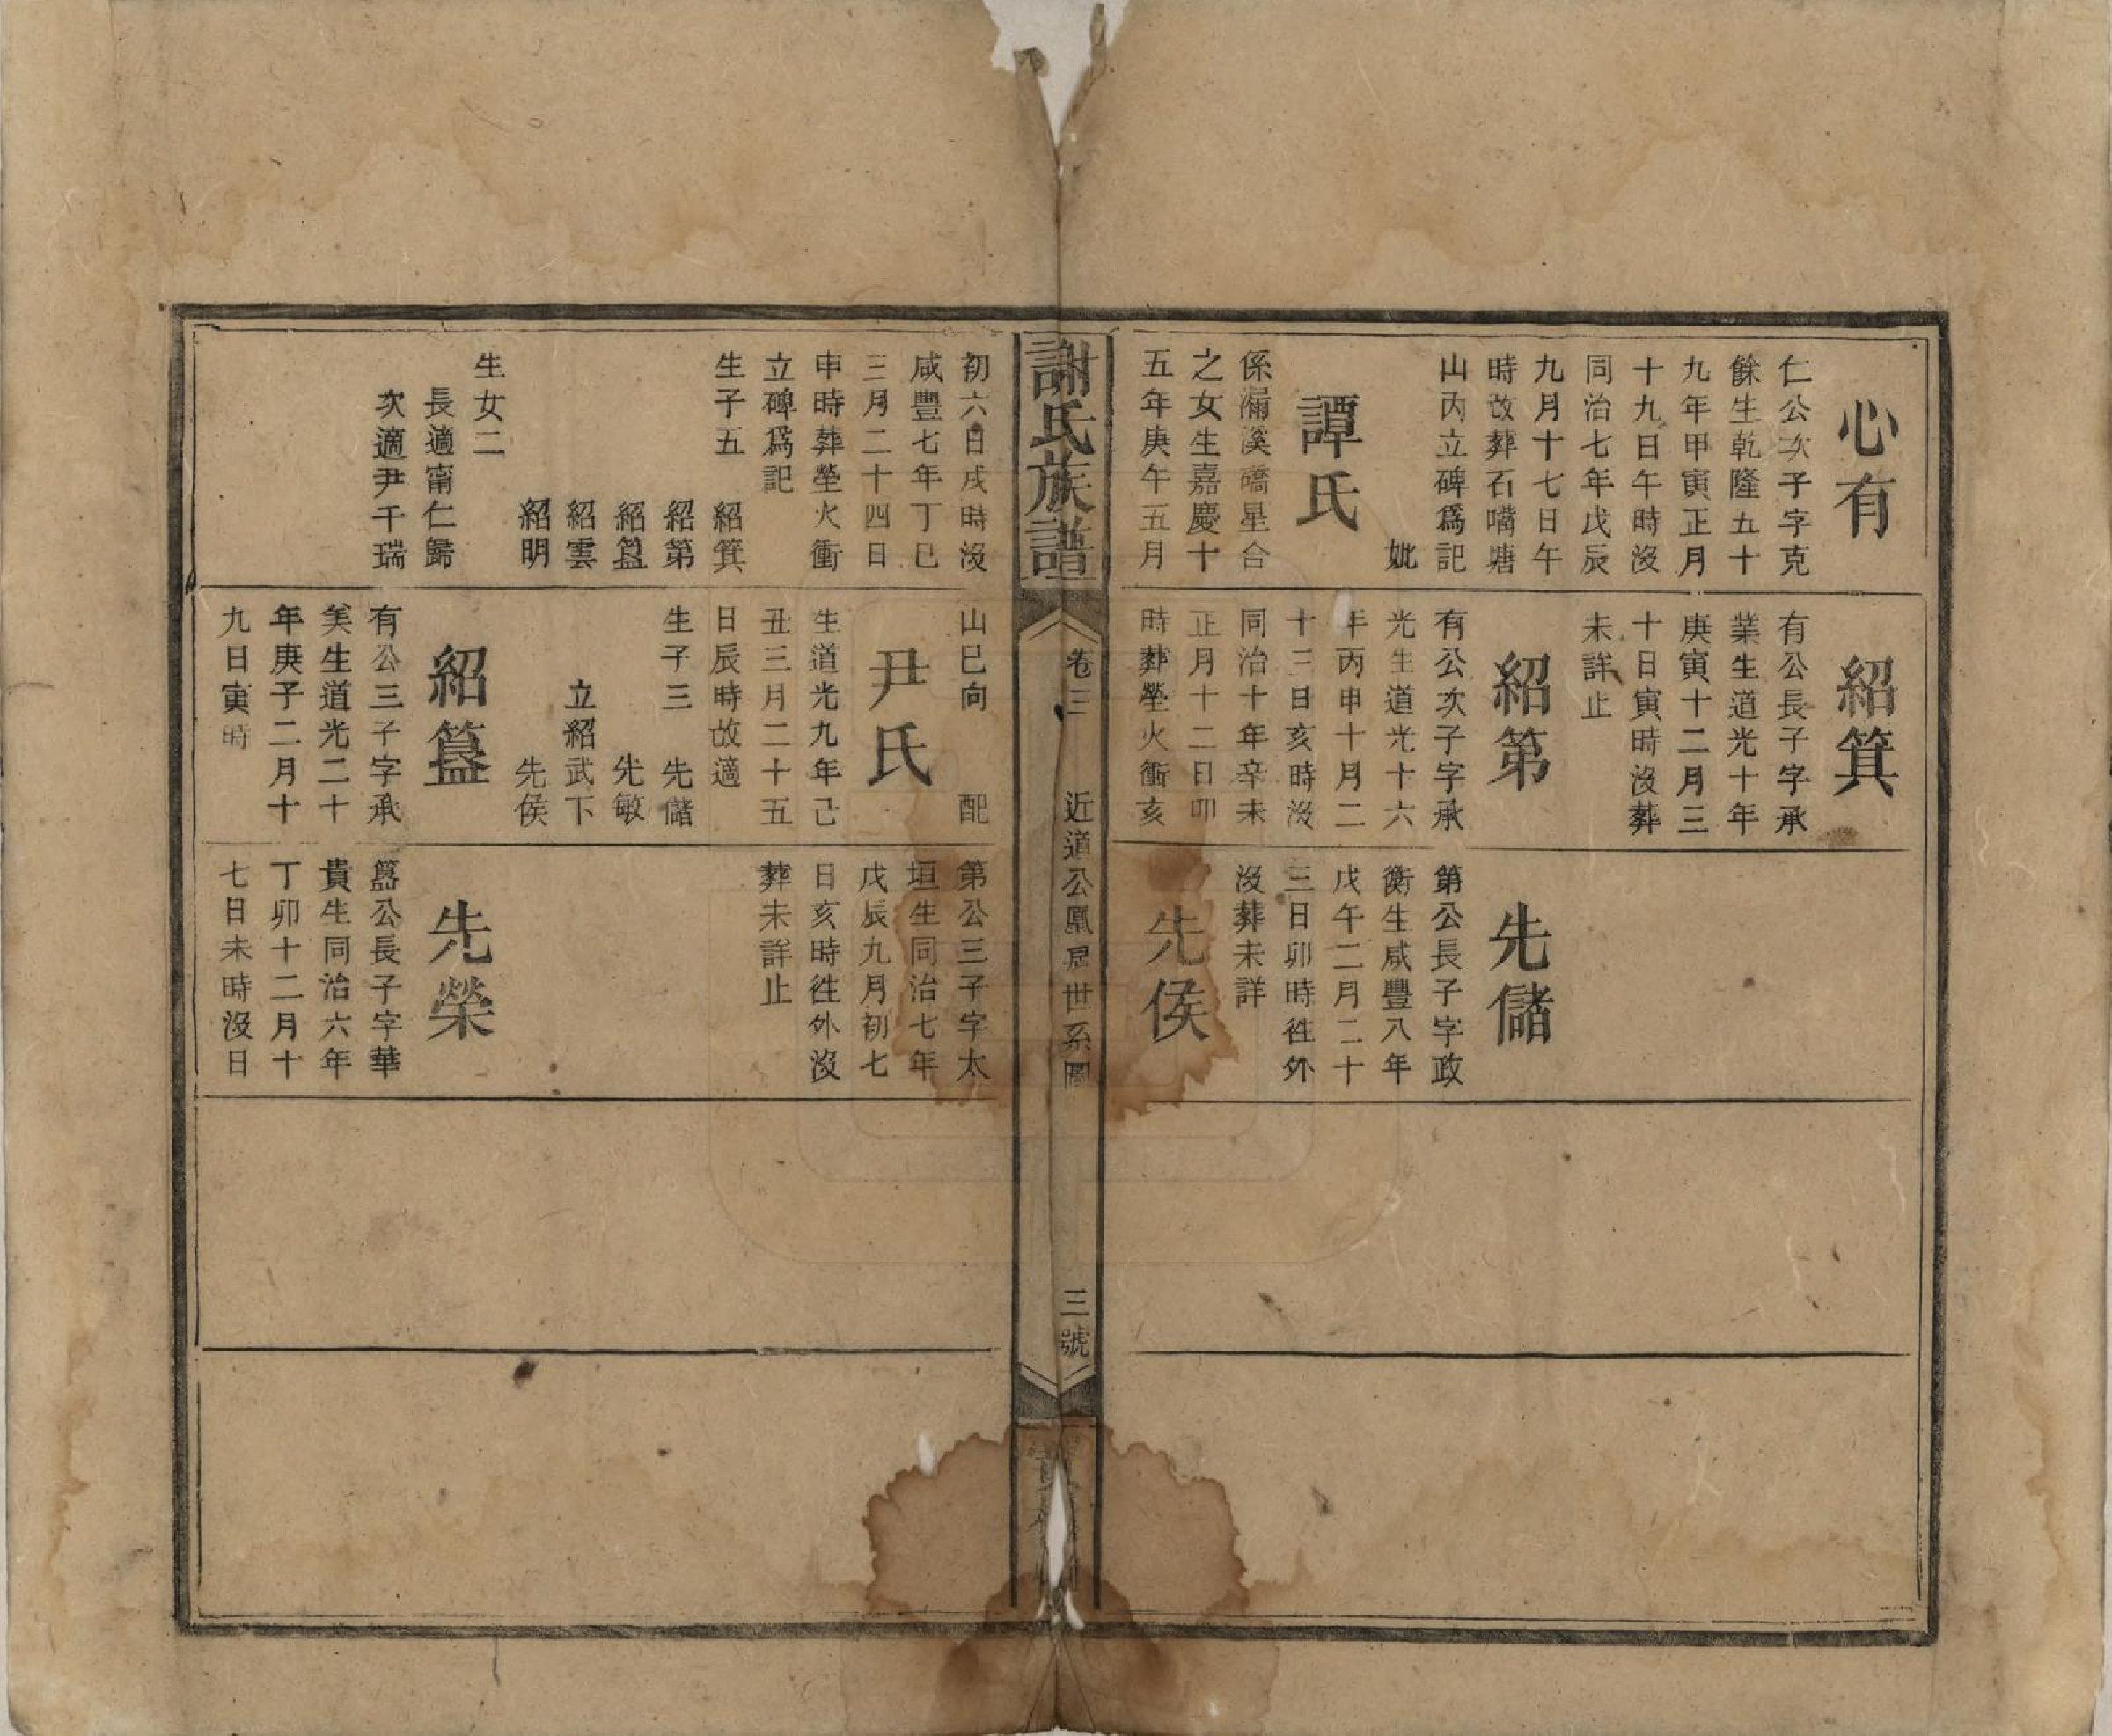 心有
仁公次子字克
餘生乾隆五十
九年甲寅正月
十九日午時沒
同治七年戊辰
九月十七日午
時故葬石嘴塘
山丙立碑爲記
妣
譚氏
係漏溪礄星合
之女生嘉慶十
五年庚午五月
紹箕
有公長子字承
業生道光十年
庚寅十二月三
十日寅時沒葬
未詳止
紹第
有公次子字承
光生道光十六
年丙申十月二
十三日亥時沒
同治十年辛未
正月十二日卯
時葬塋火衝亥
先儲
第公長子字政
衡生咸豐八年
戊午二月二十
三日卯時徃外
沒葬未詳
先侯
謝氏族譜
卷三
近道公鳳房世系圖
三號
初六日戌時沒
咸豐七年丁巳
三月二十四日
申時葬塋火衝
立碑爲記
生子五 紹箕
紹第
紹簋
紹雲
紹明
生女二
長適甯仁歸
次適尹千瑞
山巳向 配
尹氏
生道光九年己
丑三月二十五
日辰時故適
生子三 先儲
先敏
立紹武下
先侯
紹簋
有公三子字承
美生道光二十
年庚子二月十
九日寅時
第公三子字太
垣生同治七年
戊辰九月初七
日亥時徃外沒
葬未詳止
先榮
簋公長子字華
貴生同治六年
丁卯十二月十
七日未時沒日